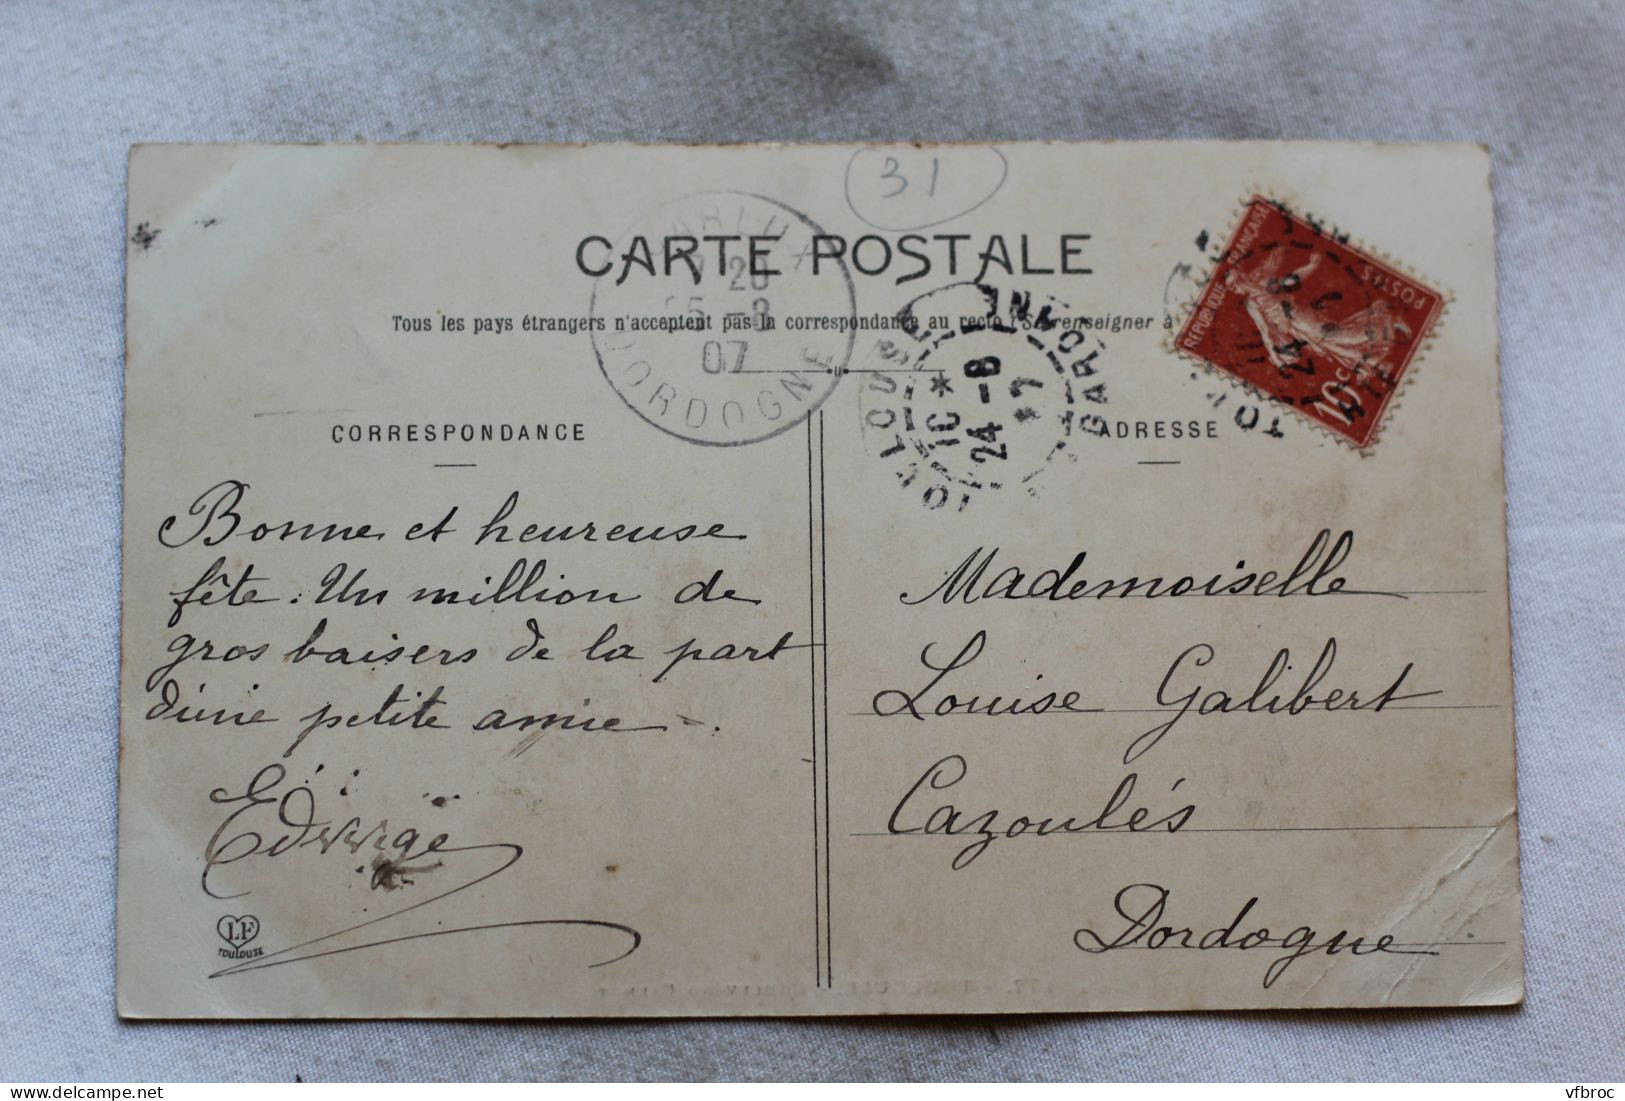 31
CARTE POSTALE
Tous les pays étrangers n'acceptent pas la correspondance au recto (Se renseigner à
CARLUX
20
25 -8
07
DORDOGNE
TOULOUSE
HTE GARONNE
10 *
24 -8
07
RÉPUBLIQUE FRANÇAISE
POSTES
10 c
24 -8
CORRESPONDANCE
ADRESSE
Bonne et heureuse
fête. Un million de
gros baisers de la part
d'une petite amie -.
Edwige
LF
TOULOUSE
Mademoiselle
Louise Galibert
Cazoulés
Dordogne
delcampe.net
vfbroc